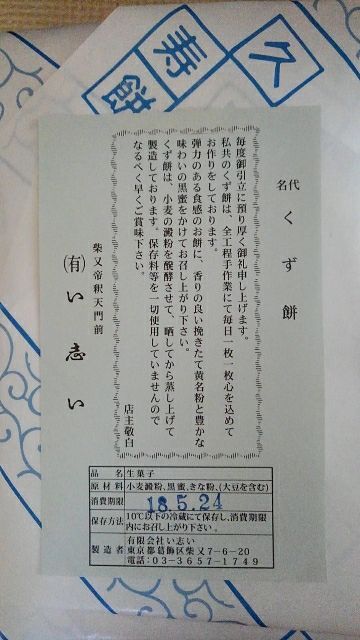 久
寿
餅
名代
くず餅
毎度御引立に預り厚く御礼申し上げます。
私共のくず餅は、全工程手作業にて毎日一枚一枚心を込めて
お作りをしております。
弾力のある食感のお餅に、香りの良い挽きたて黄名粉と豊かな
味わいの黒蜜をかけてお召し上がり下さい。
くず餅は、小麦の澱粉を醗酵させて、晒してから蒸し上げて
製造しております。保存料等を一切使用していませんので
なるべく早くご賞味下さい。
店主敬白
柴又帝釈天門前
(有)い志い
品名 生菓子
原材料 小麦澱粉、黒蜜、きな粉、(大豆を含む)
消費期限 18.5.24
保存方法 10℃以下の冷蔵にて保存し、消費期限
内にお召し上がり下さい。
製造者 有限会社い志い
東京都葛飾区柴又7-6-20
電話03-3657-1749